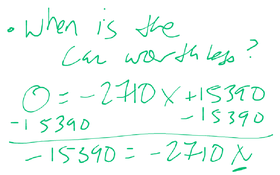 • When is the
car worthless?
0 = -2710x + 15390
-15390 -15390
-15390 = -2710x